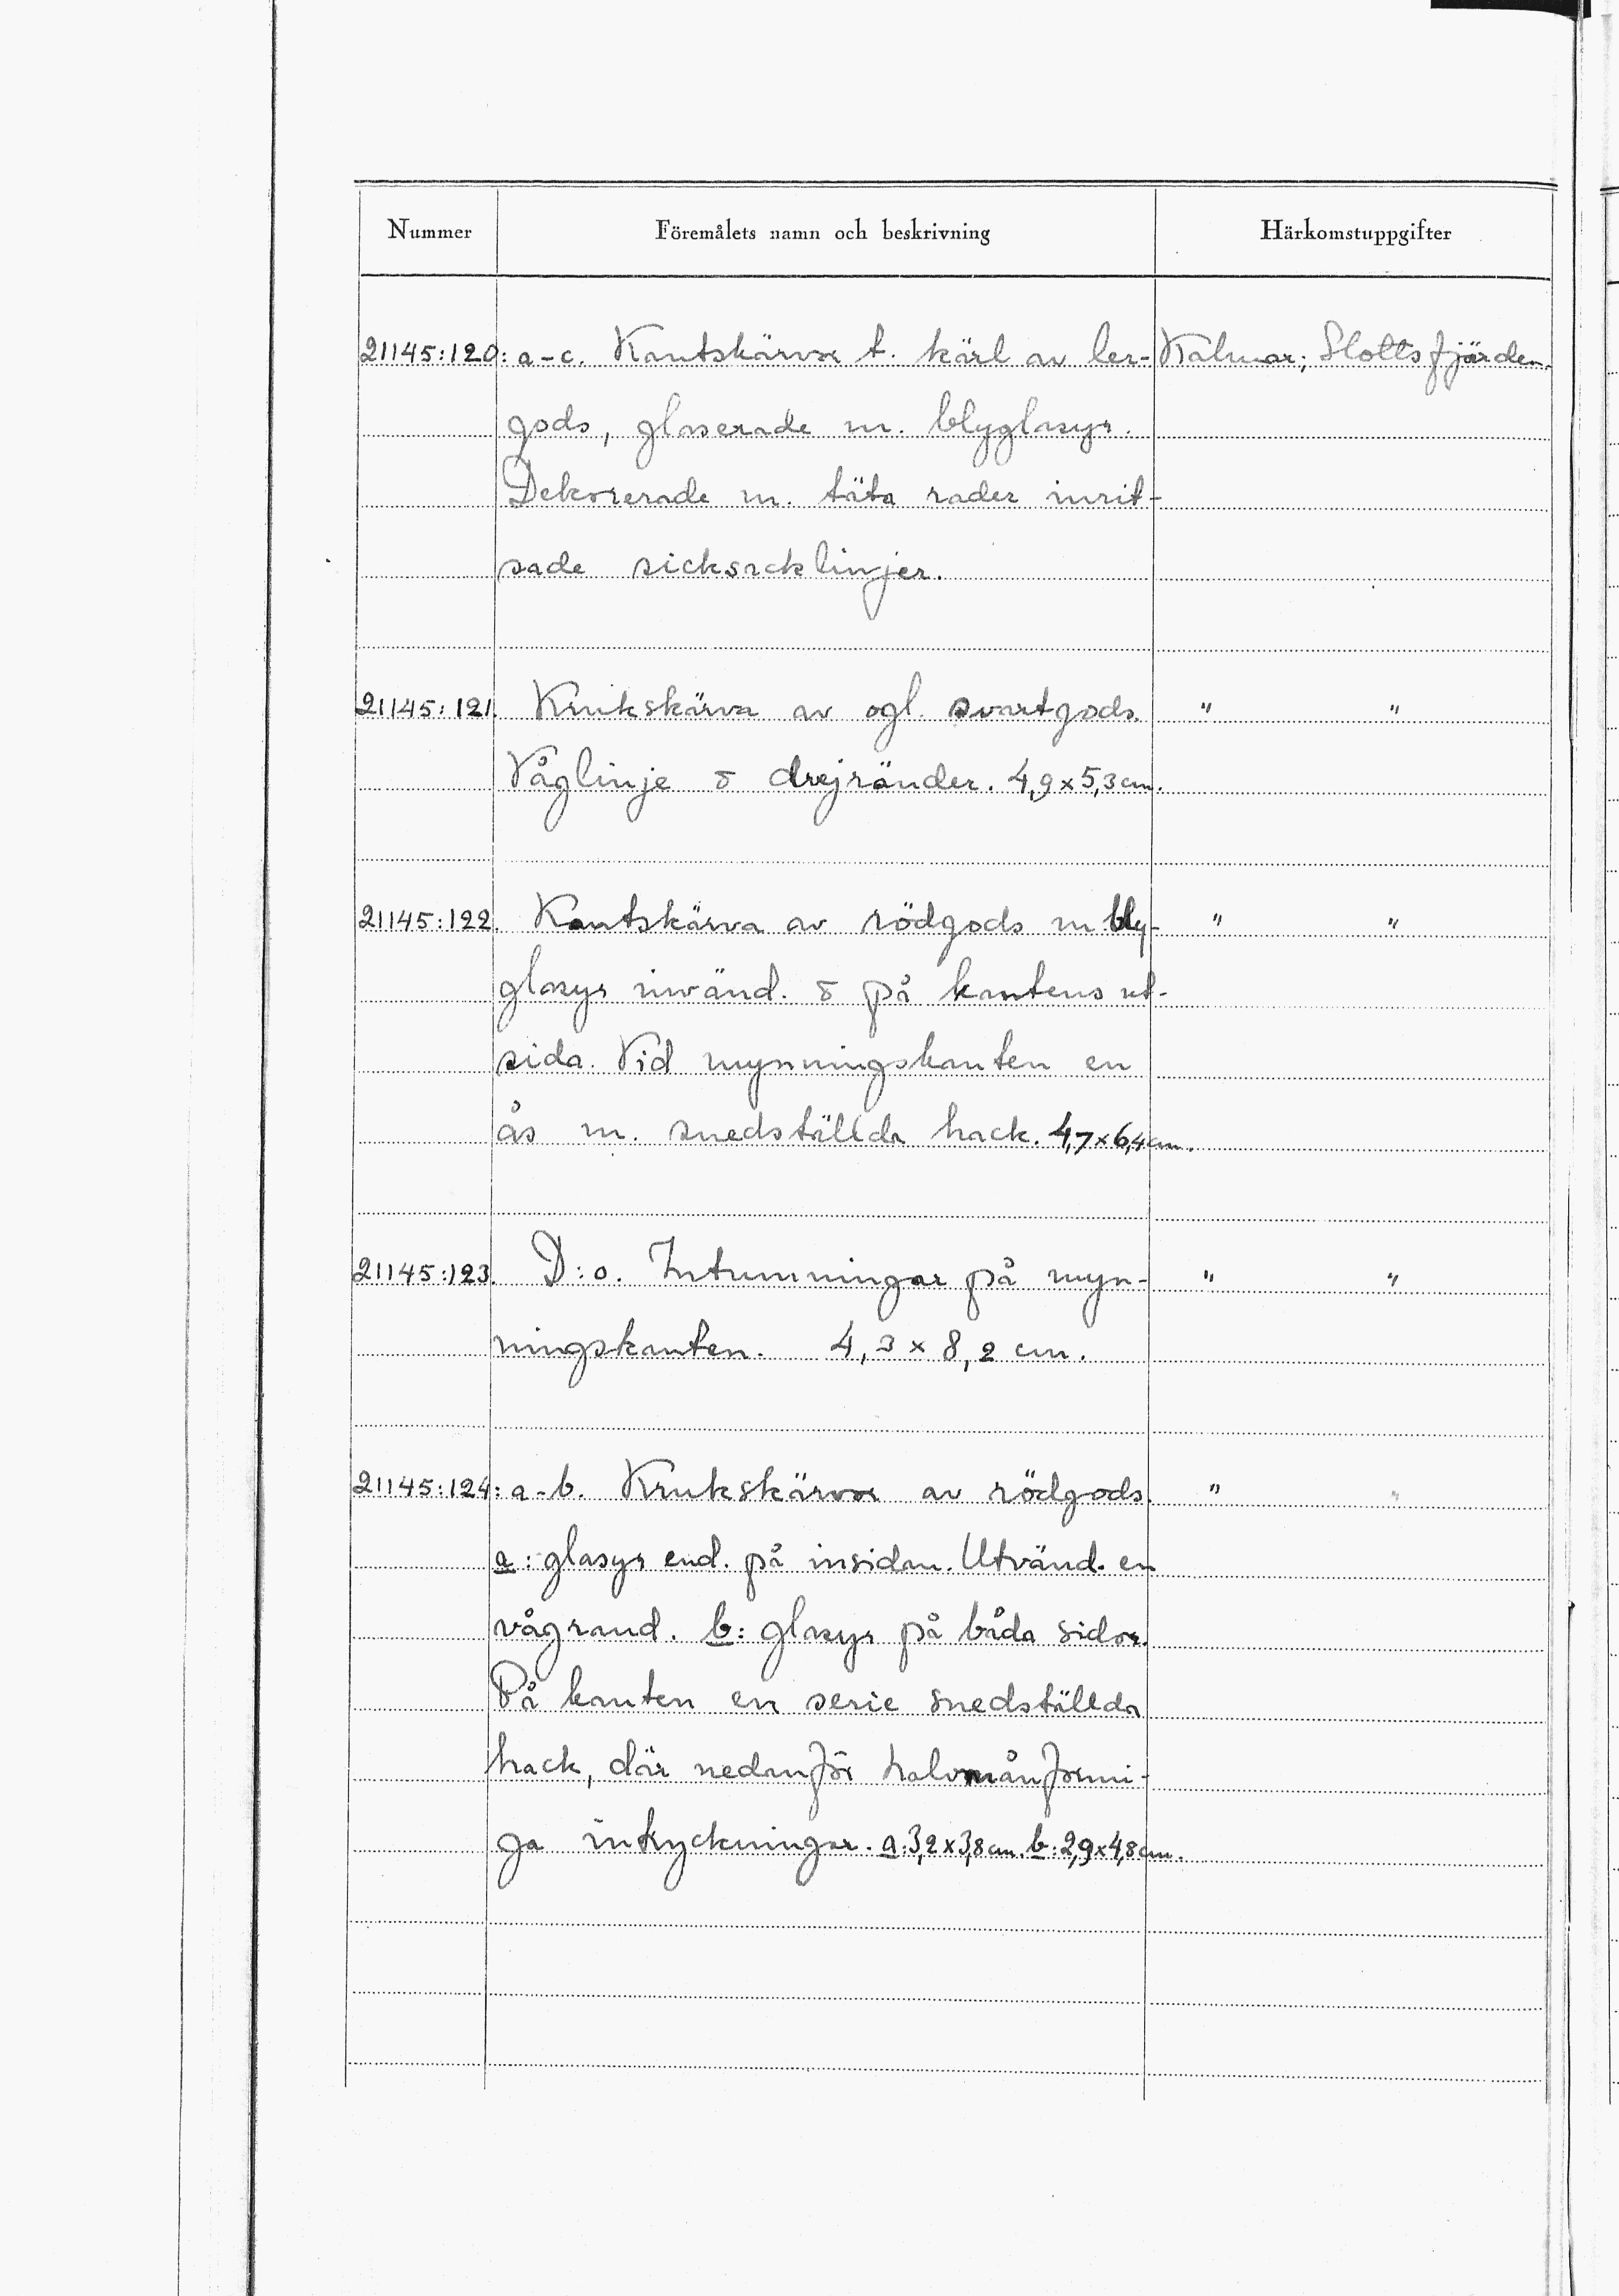 Nummer Föremålets namn och beskrivning Härkomstuppgifter
21145:120: a-c. Kantskärvor t. kärl av ler- Kalmar; Slottsfjärden.
gods, glaserade m. blyglasyr.
Dekorerade m. täta rader inrit-
sade sicksacklinjer.
21145:121. Krukskärva av ogl. svartgods. " "
Våglinje o drejränder. 4,9x5,3 cm.
21145:122. Kantskärva av rödgods m. bly- " "
glasyr invänd. o på kantens ut-
sida. Vid mynningskanten en
ås m. snedställda hack. 4,7x6,4 cm.
21145:123. D:o. Intumningar på myn- " "
ningskanten. 4,3 x 8,2 cm.
21145:124: a-b. Krukskärvor av rödgods. " "
a: glasyr end. på insidan. Utvänd. en
vågrand. b: glasyr på båda sidor.
På kanten en serie snedställda
hack, där nedanför halvmånformi-
ga intryckningar. a: 3,2x3,8 cm. b: 2,9x4,8 cm.